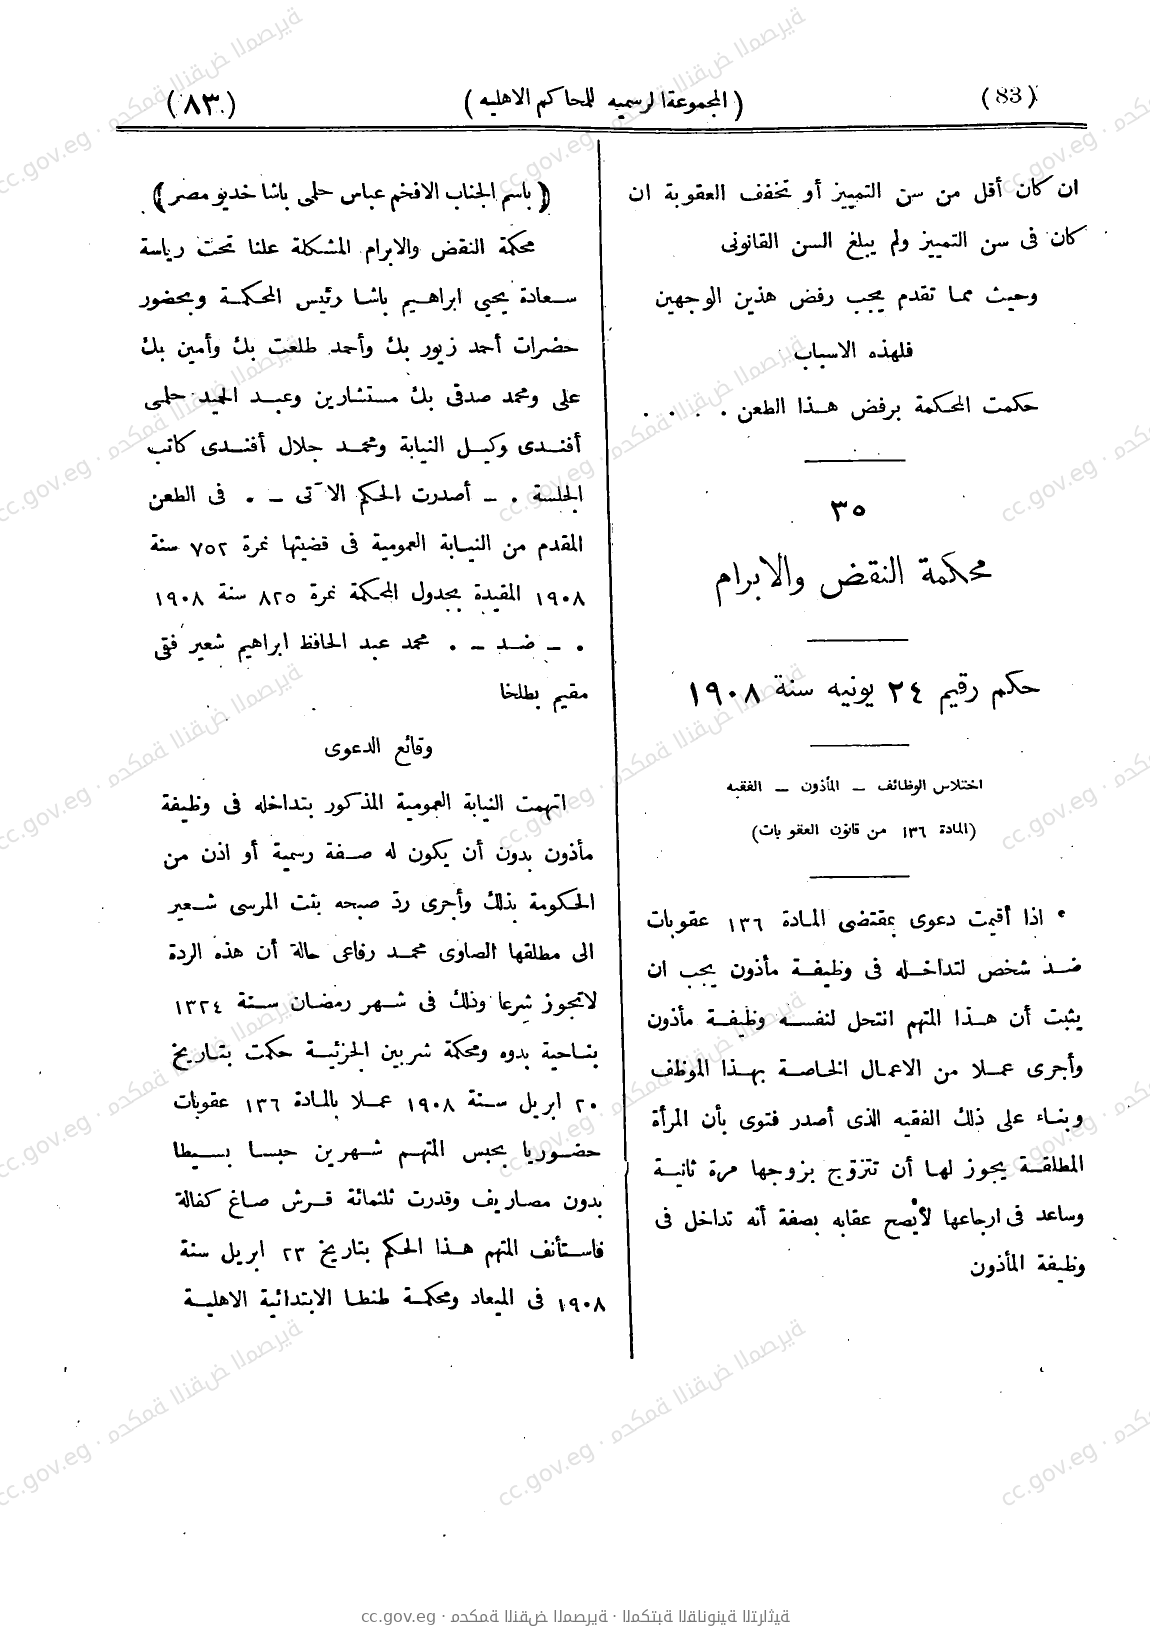 (83)
(المجموعة الرسميه للمحاكم الاهليه)
(٨٣)
ان كان أقل من سن التمييز أو تخفف العقوبة ان
كان فى سن التمييز ولم يبلغ السن القانونى
وحيث مما تقدم يجب رفض هذين الوجهين
فلهذه الاسباب
حكمت المحكمة برفض هذا الطعن . . . .
٣٥
محكمة النقض والابرام
حكم رقيم ٢٤ يونيه سنة ١٩٠٨
اختلاس الوظائف ــ المأذون ــ الفقيه
(المادة ١٣٦ من قانون العقوبات)
اذا أقيمت دعوى بمقتضى المادة ١٣٦ عقوبات
ضد شخص لتداخله فى وظيفة مأذون يجب ان
يثبت أن هذا المتهم انتحل لنفسه وظيفة مأذون
وأجرى عملا من الاعمال الخاصة بهذا الموظف
وبناء على ذلك الفقيه الذى أصدر فتوى بأن المرأة
المطلقة يجوز لها أن تتزوج بزوجها مرة ثانية
وساعد فى ارجاعها لايصح عقابه بصفة أنه تداخل فى
وظيفة المأذون
(باسم الجناب الافخم عباس حلمى باشا خديو مصر)
محكمة النقض والابرام المشكلة علنا تحت رياسة
سعادة يحيى ابراهيم باشا رئيس المحكمة وبحضور
حضرات أحمد زيور بك وأحمد طلعت بك وأمين بك
على ومحمد صدقى بك مستشارين وعبد الحميد حلمى
أفندى وكيل النيابة ومحمد جلال أفندى كاتب
الجلسة . ــ أصدرت الحكم الآتى ــ . فى الطعن
المقدم من النيابة العمومية فى قضيتها نمرة ٧٥٢ سنة
١٩٠٨ المقيدة بجدول المحكمة نمرة ٨٢٥ سنة ١٩٠٨
. ــ ضد ــ . محمد عبد الحافظ ابراهيم شعير فقى
مقيم بطلخا
وقائع الدعوى
اتهمت النيابة العمومية المذكور بتداخله فى وظيفة
مأذون بدون أن يكون له صفة رسمية أو اذن من
الحكومة بذلك وأجرى رد صبحه بنت المرسى شعير
الى مطلقها الصاوى محمد رفاعى حالة أن هذه الردة
لاتجوز شرعا وذلك فى شهر رمضان سنة ١٣٢٤
بناحية بدوه ومحكمة شربين الجزئية حكمت بتاريخ
٢٠ ابريل سنة ١٩٠٨ عملا بالمادة ١٣٦ عقوبات
حضوريا بحبس المتهم شهرين حبسا بسيطا
بدون مصاريف وقدرت ثلثمائة قرش صاغ كفالة
فاستأنف المتهم هذا الحكم بتاريخ ٢٣ ابريل سنة
١٩٠٨ فى الميعاد ومحكمة طنطا الابتدائية الاهلية
cc.gov.eg · محكمة النقض المصرية · المكتبة القانونية التراثية